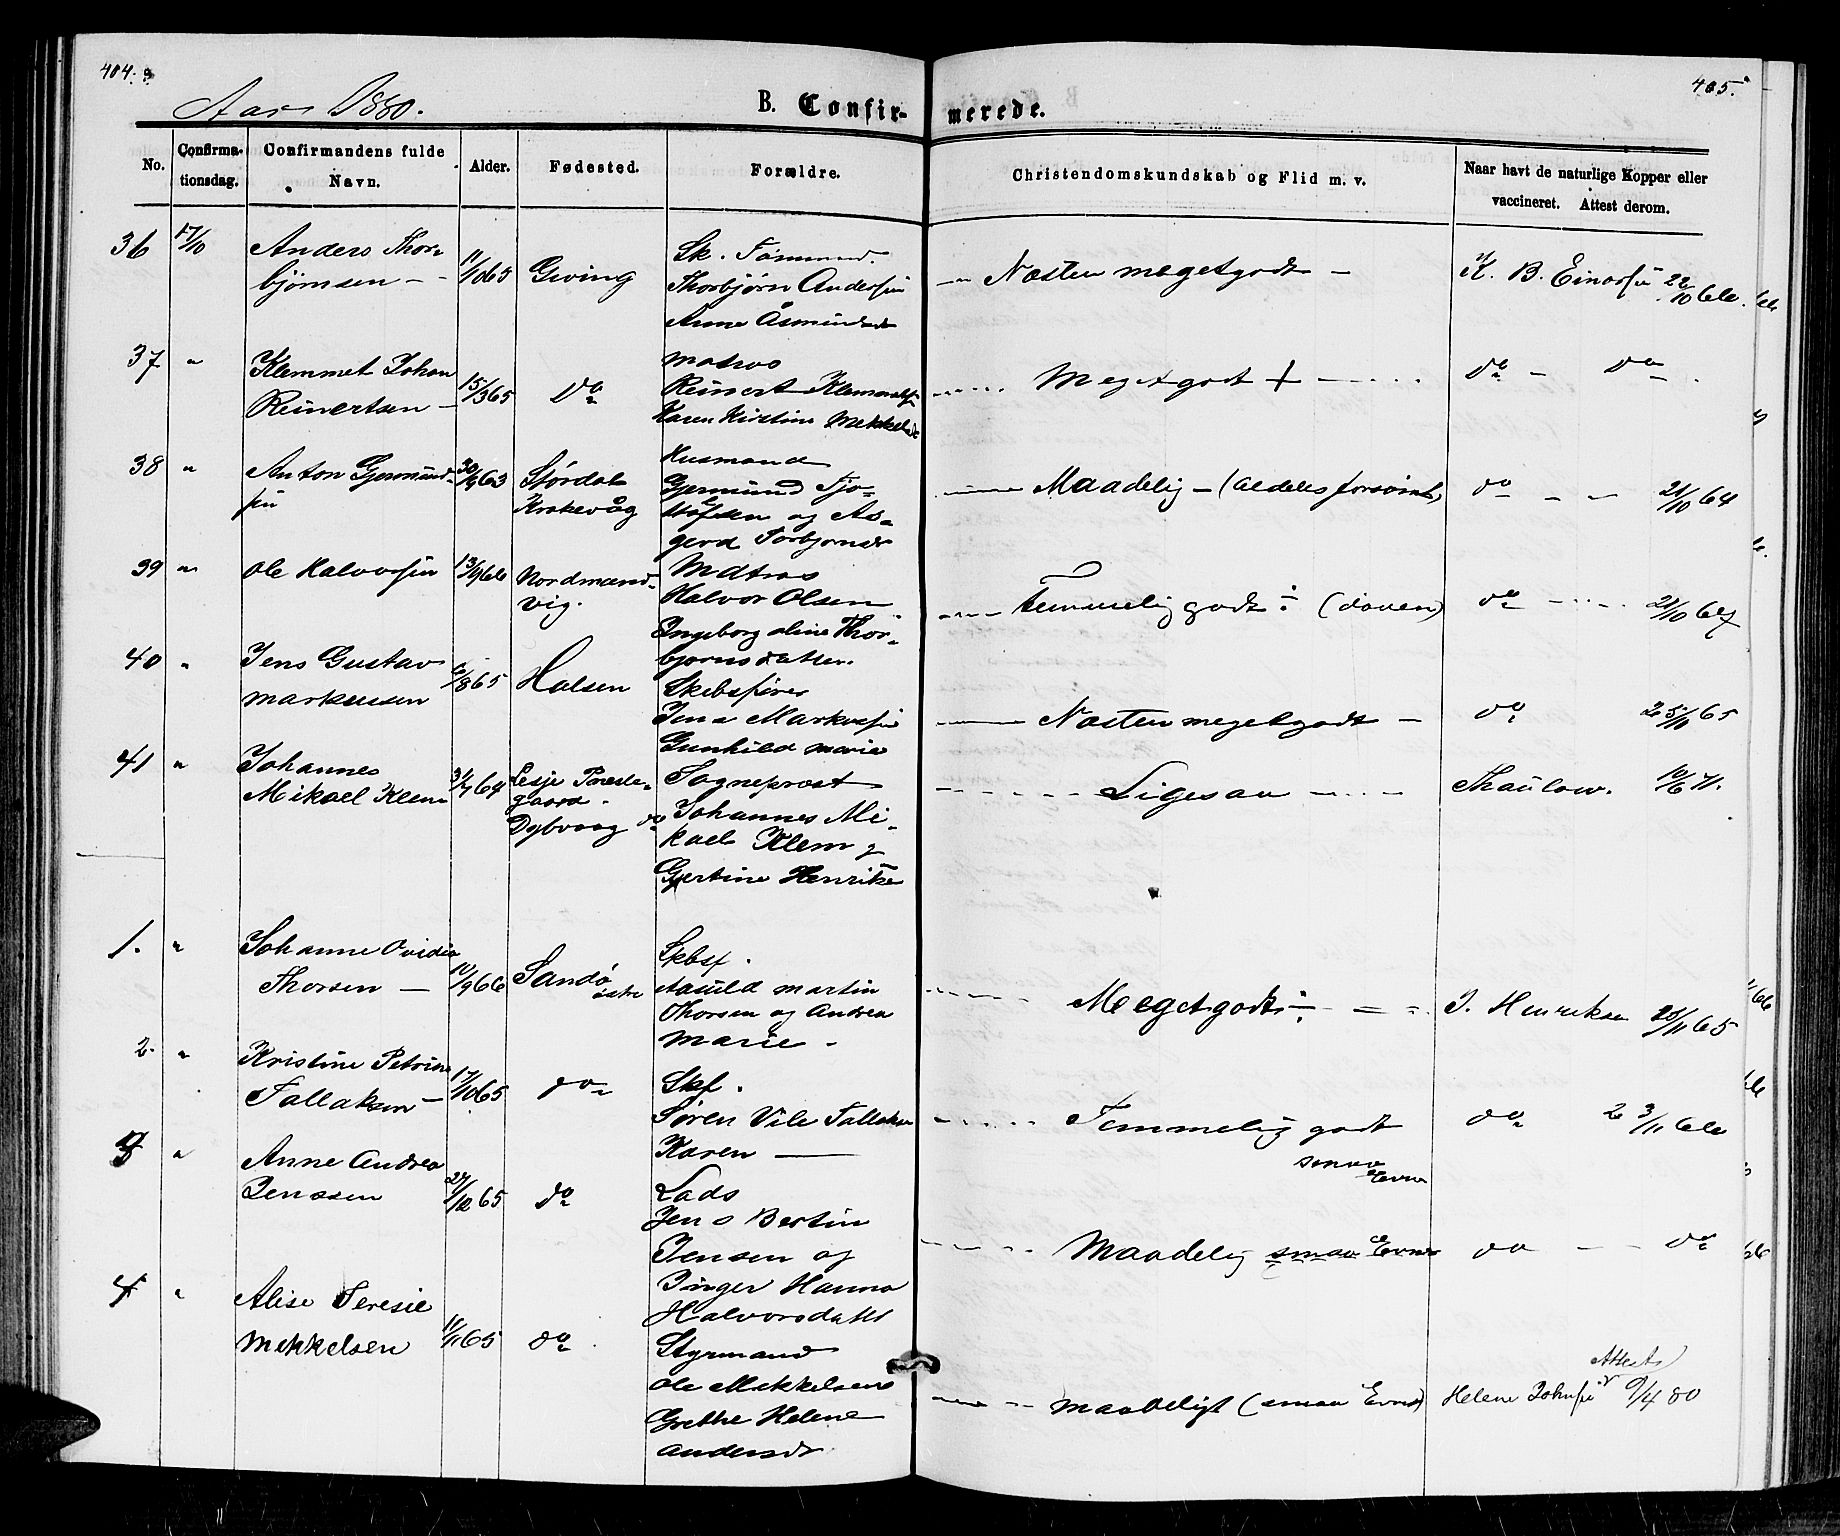 404.
405.
Aar 1880.
B. Confir-
merede.
No.
Confirma-
tionsdag.
Confirmandens fulde
Navn.
Alder.
Fødested.
Forældre.
Christendomskundskab og Flid m. v.
Naar havt de naturlige Kopper eller
vaccineret. Attest derom.
36 17/10 Anders Thor-
bjørnsen - 11/10 65 Gving
Sk. Tømmmd.
Thorbjørn Andersen
Anne Åsmundsd
Næsten megetgodt -
K. B. Einarsen 22/10 66.
37 " Klemmet Johan
Reinertsen - 15/3 65 Do
Matros
Reinert Klemmetsen
Karen Kirstine Mekkelsd
Meget godt +
do - do
38 " Anton Gjermund-
sen 30/9 63 Størdal
Krokevåg
Husmand
Gjermund Tjo-
stofsen og As-
gerd Torbjørnsd
Maadelig - (aldeles forsømt)
do - - 21/10 64
39 " Ole Halvorsen 13/9 66 Nordmand-
vig.
Matros
Halvor Olsen
Ingeborg Oline Thor-
bjørnsdatter.
Temmelig godt ÷ (doven)
do 21/10 67
40 " Jens Gustav
Markussen 6/8 65 Halsen
Skibsfører
Jens Markussen
Gunhild Marie
Næsten megetgodt -
do 25/11 65
41 " Johannes
Mikael Klem 31/7 64 Lesje Præste-
gaard.
Dybvaag do
Sogneprost
Johannes Mi-
kael Klem g
Gjertine Henrikke
Ligesaa
Thaulow. 10/6 71.
1. " Johanne Ovidia
Thorsen - 10/9 66 Sandø
østre
Skbsf.
Asuld Martin
Thorsen og Andrea
Marie -
Meget godt ÷
J. Henriksen 25/11 65
2. " Kristine Petrine
Tallaksen - 17/10 65 do
Skf.
Søren Vile Tallaksen
Karen
Temmelig godt
smaa
Evner
do 23/11 66
3 " Anne Andrea
Jenssen 27/12 65 do
Lods
Jens Bertin
Jensen og
Inger Hanna
Halvorsdatter
Maadelig smaa Evner
do - - do
4 " Alise Teresie
Mekkelsen 11/11 65 do
Styrmand
Ole Mekkelsens
Grethe Helene
Andersdr
Maadeligt (smaa Evner)
Attest
Helene Johnsen 9/4 80